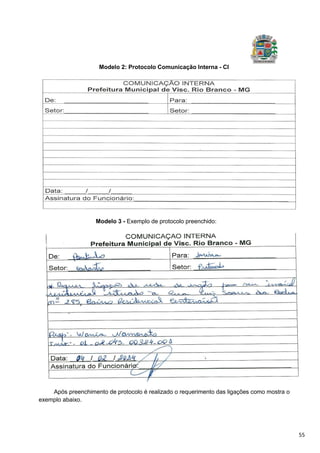 Modelo 2: Protocolo Comunicação Interna - CI
COMUNICAÇÃO INTERNA
Prefeitura Municipal de Visc. Rio Branco - MG
De: Para:
Setor: Setor:
Data: ____/____/____
Assinatura do Funcionário:
Modelo 3 - Exemplo de protocolo preenchido:
COMUNICAÇAO INTERNA
Prefeitura Municipal de Visc. Rio Branco - MG
De: Para:
Setor: Cadastro Setor:
Requer ligação de rede de esgoto para seu imóvel
residencial situado a Rua Luiz Soares da Rocha
nº 259, Bairro Residencial Centenário
Reqt: Wania Namorato
Insc: 01.08.093.00324.001
Data: 01 / 02 / 2024
Assinatura do Funcionário:
Após preenchimento de protocolo é realizado o requerimento das ligações como mostra o
exemplo abaixo.
55